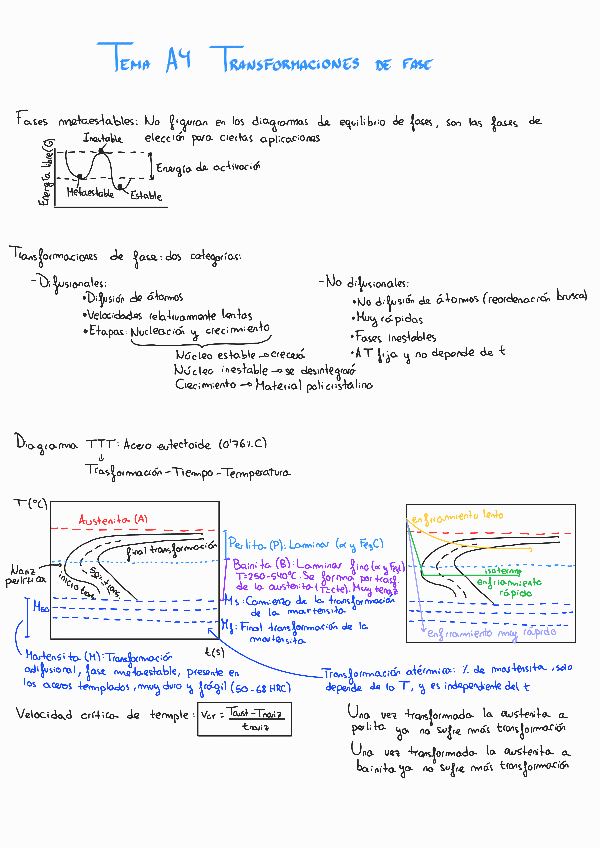 TEMA A4 TRANSFORMACIONES DE FASE
Fases metaestables: No figuran en los diagramas de equilibrio de fases, son las fases de
elección para ciertas aplicaciones
Inestable
Energía libre (G)
Energía de activación
Metaestable
Estable
Transformaciones de fase: dos categorías:
- Difusionales:
• Difusión de átomos
• Velocidades relativamente lentas
• Etapas: Nucleación y crecimiento
Núcleo estable → crecerá
Núcleo inestable → se desintegrará
Crecimiento → Material policristalino
- No difusionales:
• No difusión de átomos (reordenación brusca)
• Muy rápidas
• Fases inestables
• A T fija y no depende de t
Diagrama TTT: Acero eutectoide (0'76%C)
↓
Trasformación - Tiempo - Termperatura
T (°C)
Austenita (A)
final transformación
50% trans
inicio trans
Nariz
perlítica
M50
t(s)
Perlita (P): Laminar (α y Fe3C)
Bainita (B): Laminar fino (α y Fe3C)
T=250-540°C. Se forma por trasf.
de la austenita (T=cte). Muy tenaz
Ms: Comienzo de la transformación
de la martensita
Mf: Final transformación de la
martensita
enfriamiento lento
isotermo
enfriamiento
rápido
enfriamiento muy rápido
Martensita (M): Transformación
adifusional, fase metaestable, presente en
los aceros templados, muy duro y frágil (60-68 HRC)
Transformación atérmica: % de martensita, solo
depende de la T, y es independiente del t
Velocidad crítica de temple: Vcr = Taust - Tnariz / tnariz
Una vez transformada la austenita a
perlita ya no sufre más transformación
Una vez transformada la austenita a
bainita ya no sufre más transformación